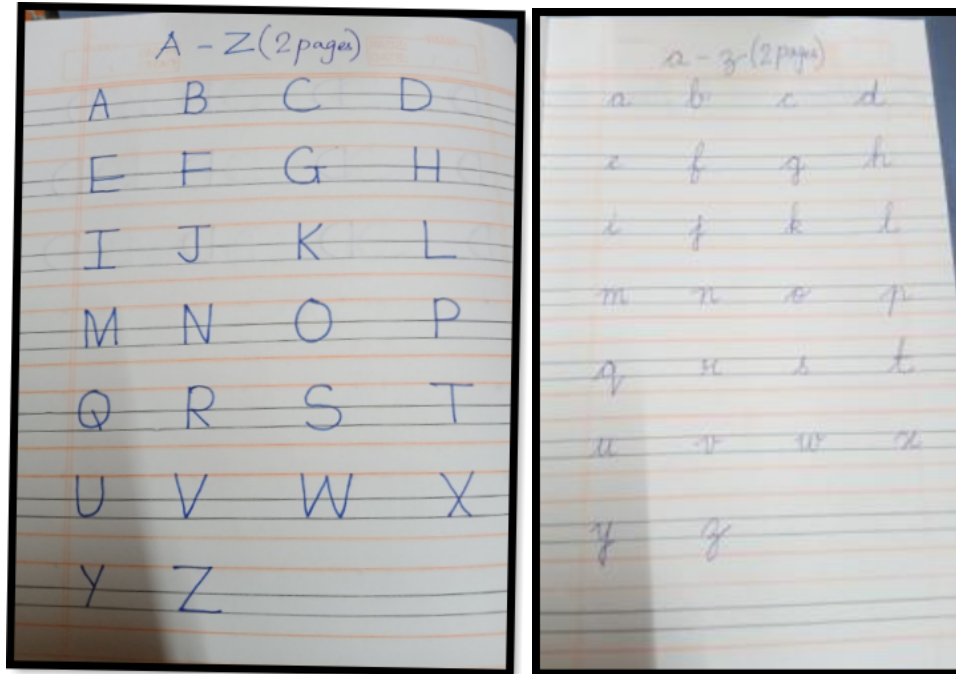 A - Z (2 pages)
A B C D
E F G H
I J K L
M N O P
Q R S T
U V W X
Y Z
a - z (2 pages)
a b c d
e f g h
i j k l
m n o p
q r s t
u v w x
y z